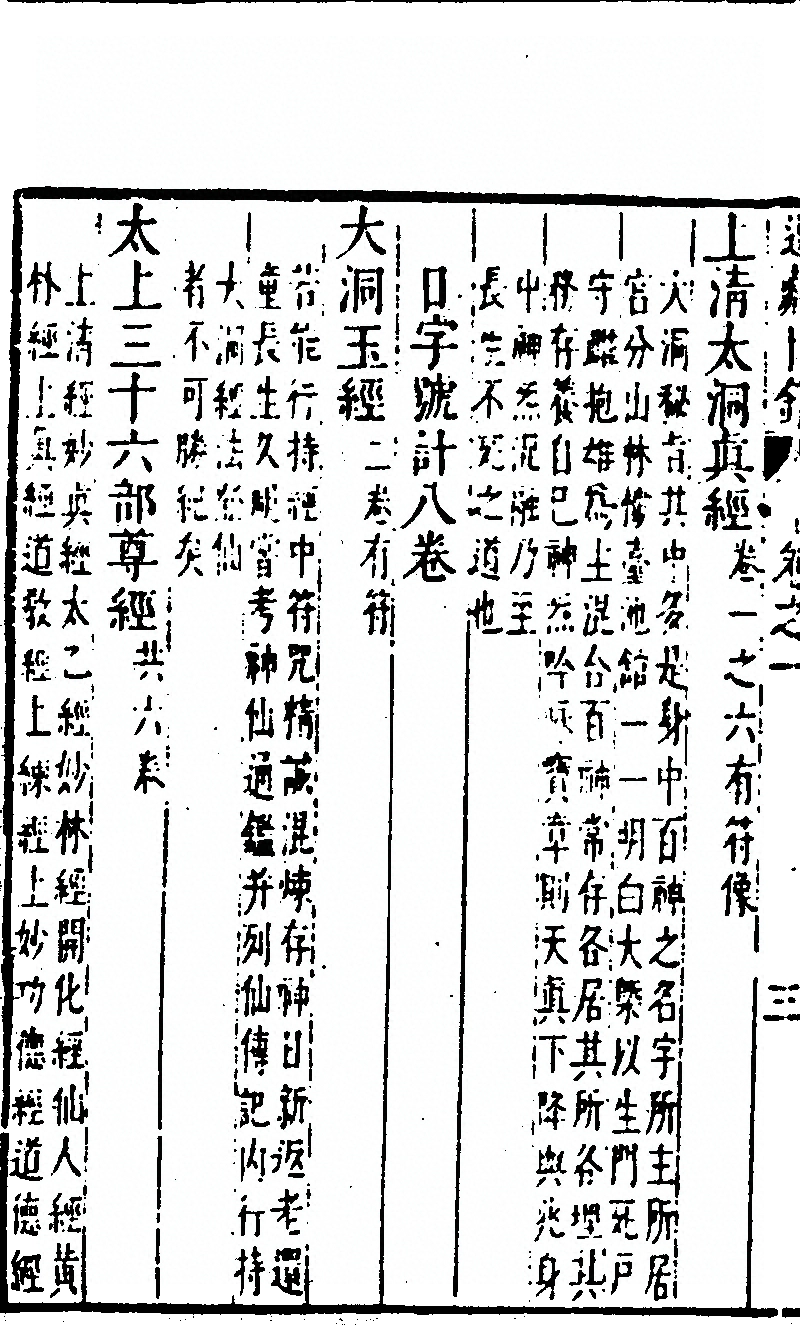 上清太洞真經卷一之六有符像
大洞秘旨其中多是身中百神之名字所主所居
宮分山林樓臺池館一一明白大槩以生門死戶
守雌抱雄爲主混合百神常存各居其所各理其
務存養自己神炁吟咏寶章則天真下降與兆身
中神炁混融乃至
長生不死之道也
日字號計八卷
大洞玉經二卷有符
若能行持經中符咒精誠混煉存神日新返老還
童長生久視嘗考神仙通鑑并列仙傳記內行持
大洞經法登仙
者不可勝紀矣
太上三十六部尊經共六卷
上清經妙真經太乙經妙林經開化經仙人經黃
林經上真經道教經上練經上妙功德經道德經
三